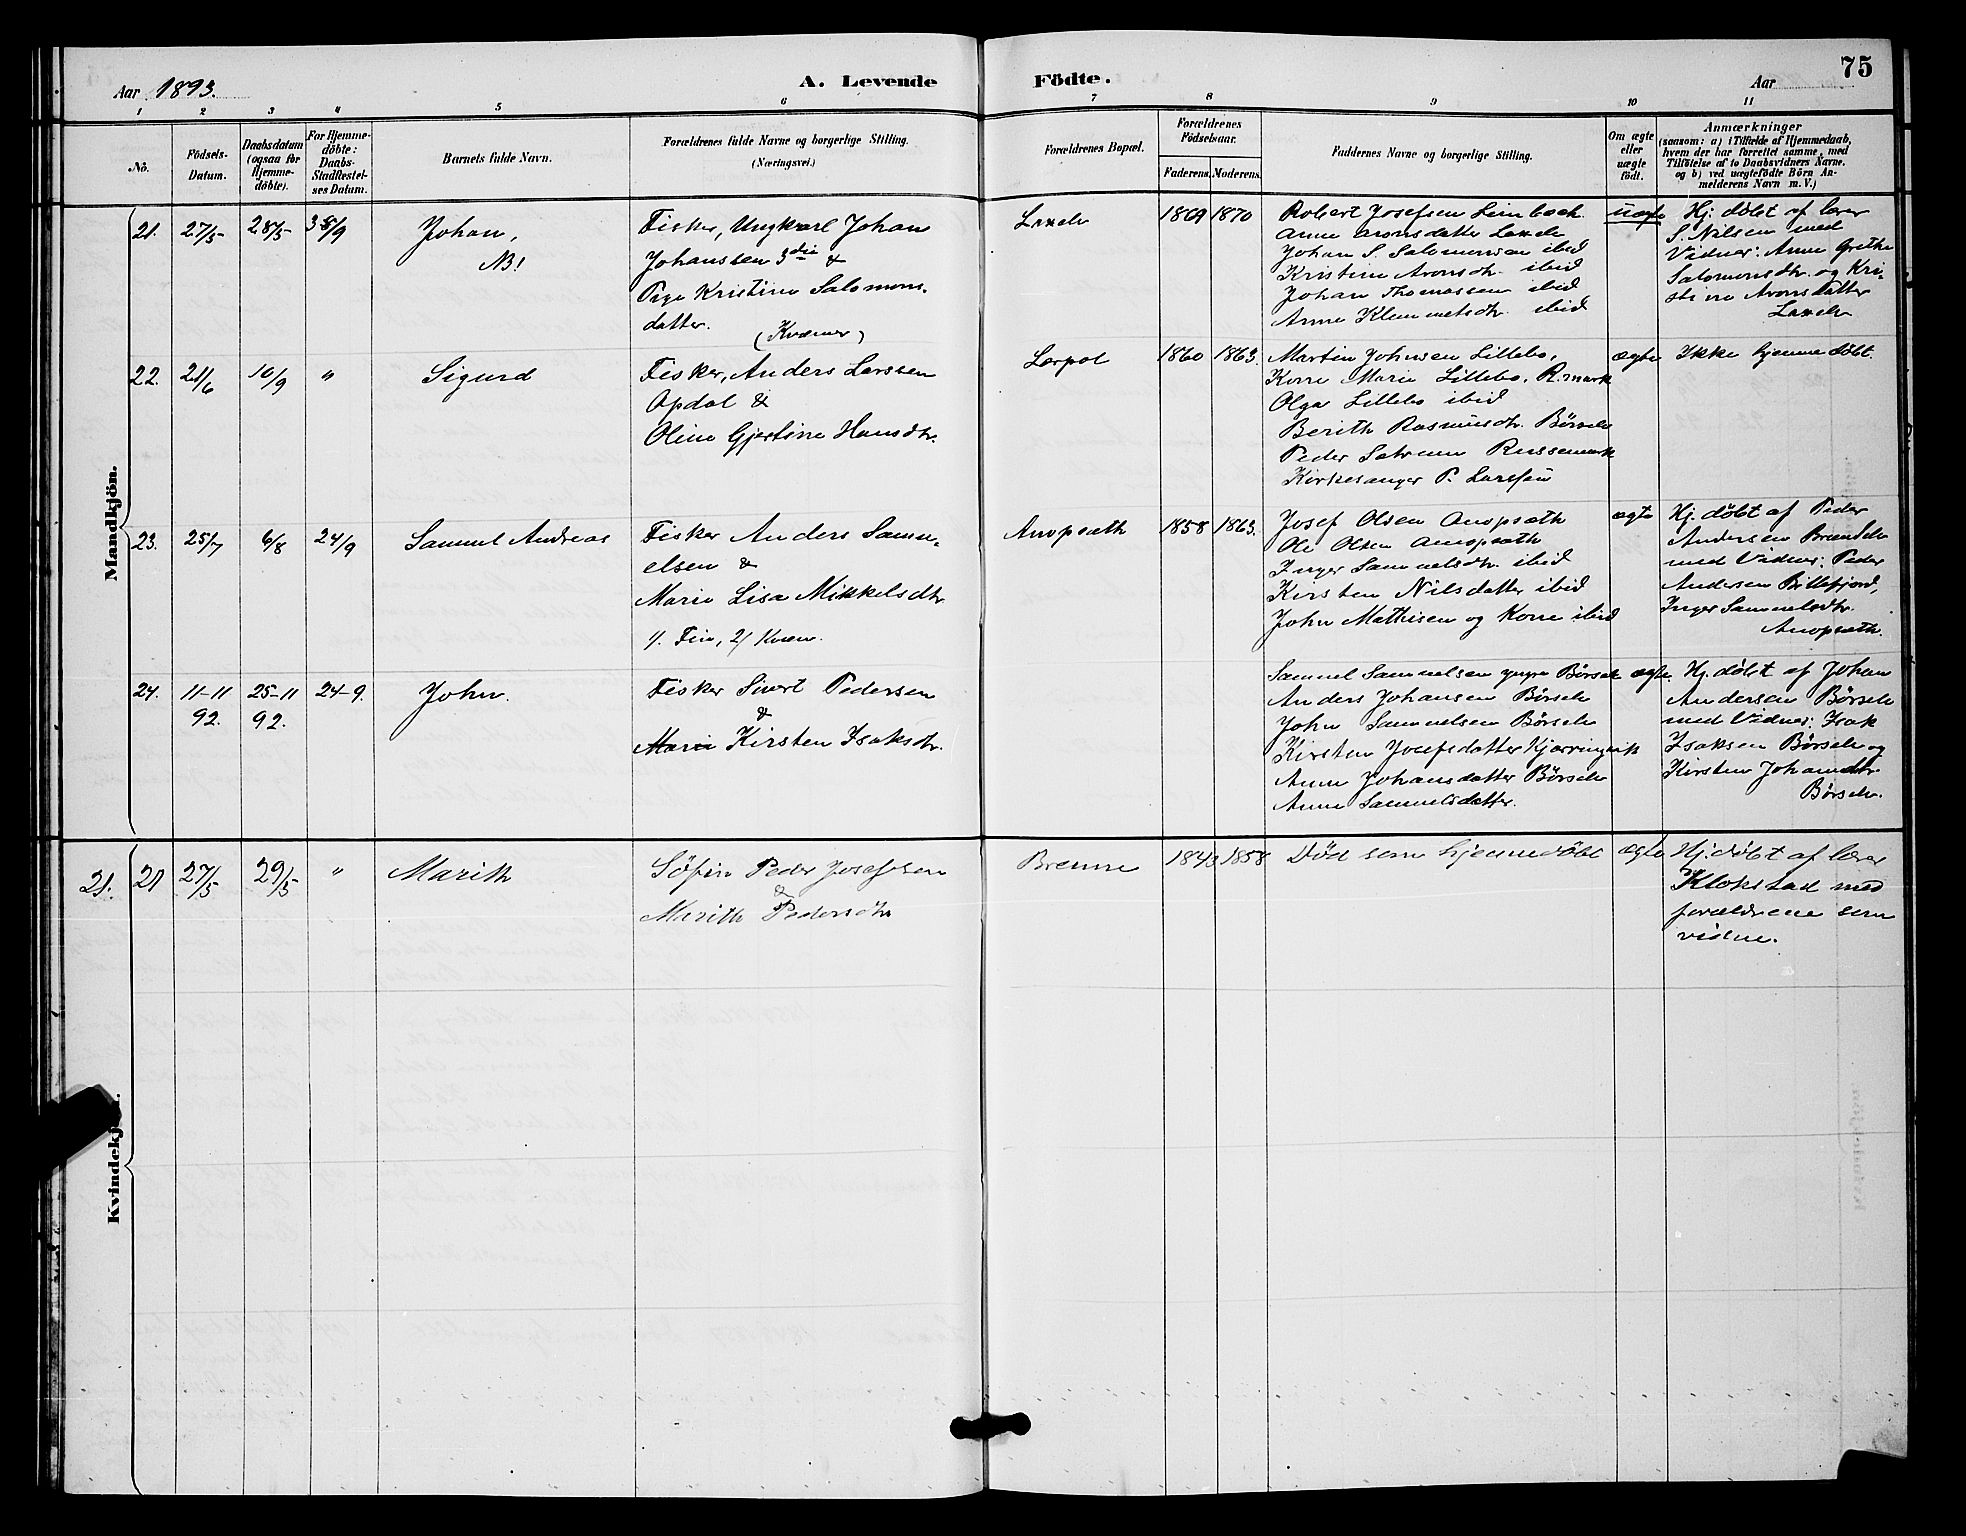 Aar 1893.
A. Levende Födte.
Aar
75
1 2 3 4 5 6 7 8 9 10 11
No.
Födsels-Datum.
Daabsdatum (ogsaa for Hjemmedöbte).
For Hjemmedöbte: Daabs-Stadfestelses Datum.
Barnets fulde Navn.
Forældrenes fulde Navne og borgerlige Stilling.
(Næringsvei.)
Forældrenes Bopæl.
Forældrenes Födselsaar.
Faderens. Moderens.
Faddernes Navne og borgerlige Stilling.
Om ægte eller uægte födt.
Anmærkninger
(saasom: a) i Tilfælde af Hjemmedaab,
hvem der har forrettet samme, med
Tilföielse af to Daabsvidners Navne,
og b) ved uægtefödte Börn An-
melderens Navn m. V.)
Mandkjön.
21. 27/5 28/5 3/9 Johan,
NB!
Fisker, Ungkarl Johan
Johanssen 3die &
Pige Kristine Salomons-
datter.
(Kvæner)
Laxelv 1869 1870
Robert Josefsen Leinbach
Anne Aronsdatter Laxelv
Johan S. Salomonsen ibid
Kristine Aronsdtr. ibid
Johan Thomassen ibid
Anne Klemmetsdtr. ibid
uægte
Hj. döbt af lærer
S. Nilsen med
Vidner: Anne Grethe
Salomonsdtr. og Kri-
stine Aronsdatter
Laxelv
22. 21/6 10/9 " Sigurd
Fisker, Anders Larssen
Opdal &
Oline Gjertine Hansdtr.
Lerpol 1860 1863.
Martin Johnsen Lillebo,
Korre Marie Lillebo, R.mark
Olga Lillebo ibid
Berith Rasmusdtr. Børselv
Peder Satrum Russemark
Kirkesanger P. Larssen
ægte
Ikke hjemmedöbt.
23. 25/7 6/8 24/9 Samuel Andreas
Fisker Anders Samu-
elsen &
Marie Lisa Mikkelsdtr.
1/. Fin, 2/ Kvæn.
Anopsæth 1858 1863.
Josef Olsen Anopsæth
Ole Olsen Anopsæth
Inger Samuelsdtr. ibid
Kirsten Nilsdatter ibid
John Mathisen og Kone ibid
ægte
Hj. döbt af Peder
Andersen Brændelv
med Vidner: Peder
Andersen Billefjord,
Inger Samuelsdtr.
Anopsæth.
24. 11-11 92. 25-11 92. 24-9. John.
Fisker Sivert Pedersen
&
Marie Kirsten Isaksdtr.
Samuel Samuelsen yngre Børselv
Anders Johansen Børselv
John Samuelsen Børselv
Kirsten Josefsdatter Kjærringvik
Anne Johansdatter Børselv
Anne Samuelsdatter.
ægte.
Hj. döbt af Johan
Andersen Börselv
med Vidner: Isak
Isaksen Börselv og
Kirsten Johansdtr.
Börselv.
Kvindekjön.
21. 21 27/5 29/5 " Marith
Söfin Peder Josefsen
&
Marith Pedersdtr
Brenne 1843 1858
Död som hjemmedöbt
ægte
Hj. döbt af lærer
Klokstad med
forældrene som
vidne.